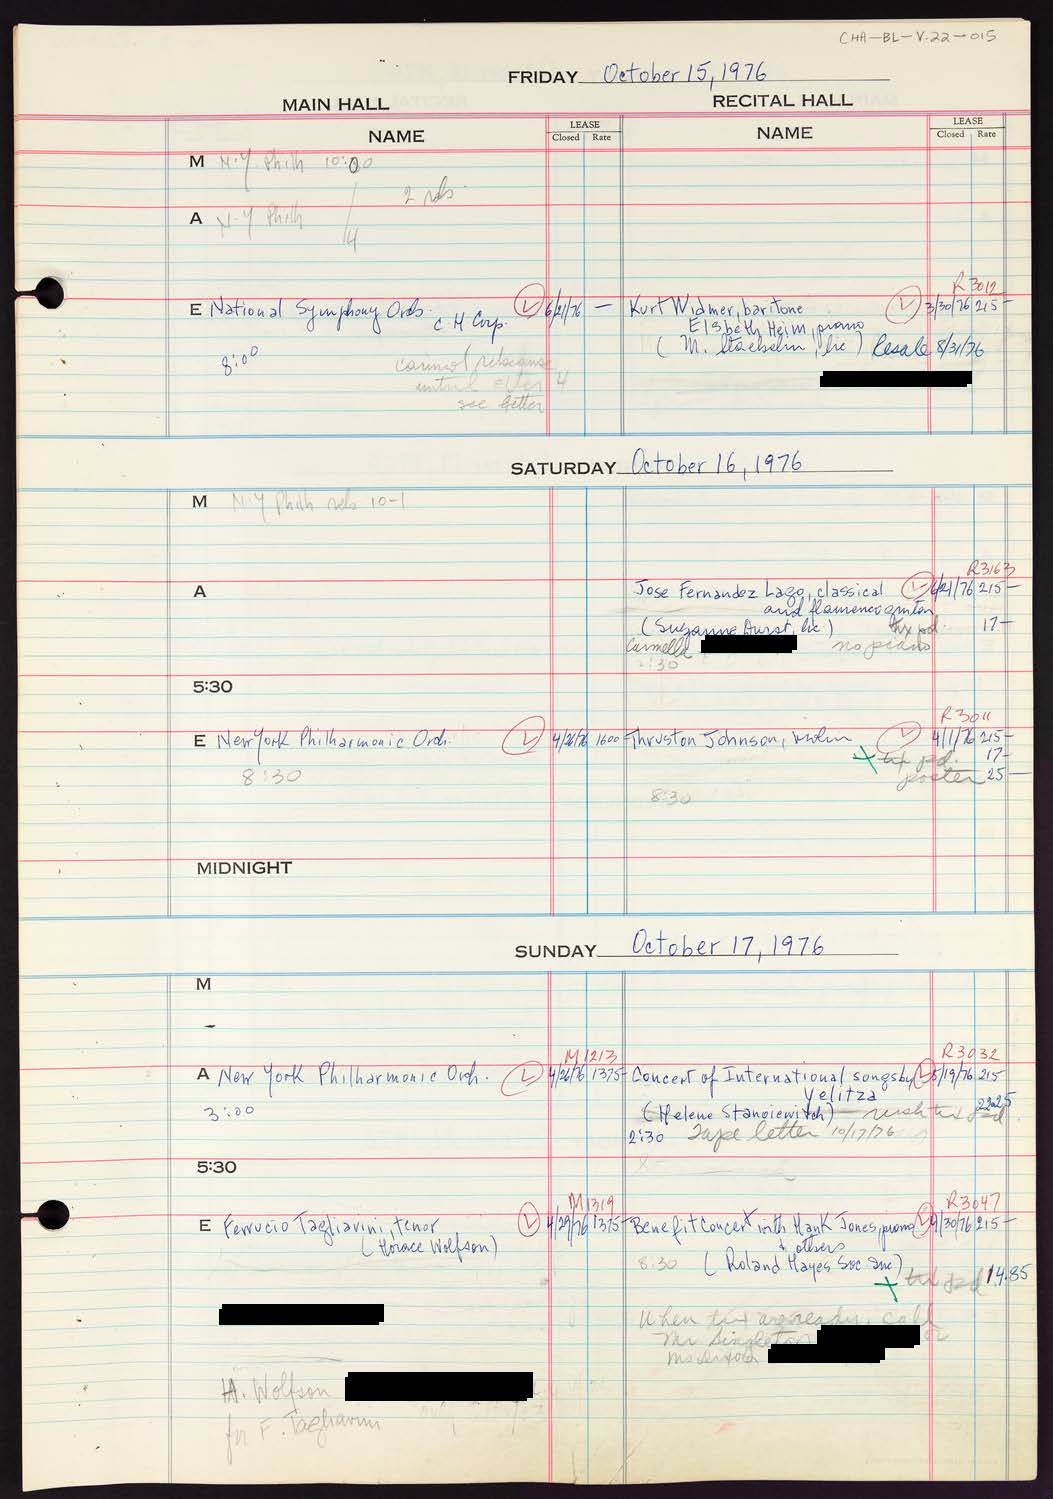 CHA-BL-V.22-015
FRIDAY October 15, 1976
MAIN HALL
RECITAL HALL
NAME
LEASE
Closed Rate
NAME
LEASE
Closed Rate
M N-Y Phill 10:00
2 rebs.
A N-Y Phill
4
R3012
E National Symphony Orch. 6/21/76 —
C H Corp.
8:00
see letter
Kurt Widmer, baritone 3/30/76 215-
Elsbeth Heim, piano
(M. , Inc) Resale 8/31/76
SATURDAY October 16, 1976
M N-Y Phill reb 10-1
A
R3163
Jose Fernandez Lago, classical 6/21/76 215-
and flamenco guitar
(Suzanne Durst, Inc) tix pd. 17-
Carmella no piano
2:30
5:30
R3011
E New York Philharmonic Orch. 4/26/76 1600
8:30
Thruston Johnson, violin 4/1/76 215-
+ tix pd. 17-
poster 25-
8:30
MIDNIGHT
SUNDAY October 17, 1976
M
M1213
A New York Philharmonic Orch. 4/26/76 1375-
3:00
R3032
Concert of International songs by 5/19/76 215
Yelitza
(Helene Stanoiewitch) tix pd 22.25
2:30 Tape letter 10/17/76
5:30
M1319
E Ferrucio Tagliavini, tenor 4/29/76 1375-
(Horace Wolfson)
R3047
Benefit Concert with Hank Jones, piano 9/30/76 215-
& others
8:30 (Roland Hayes Soc Inc)
+ tix pd 14.85
When tix are ready, call
Mr Singleton or
H. Wolfson
for F. Tagliavini